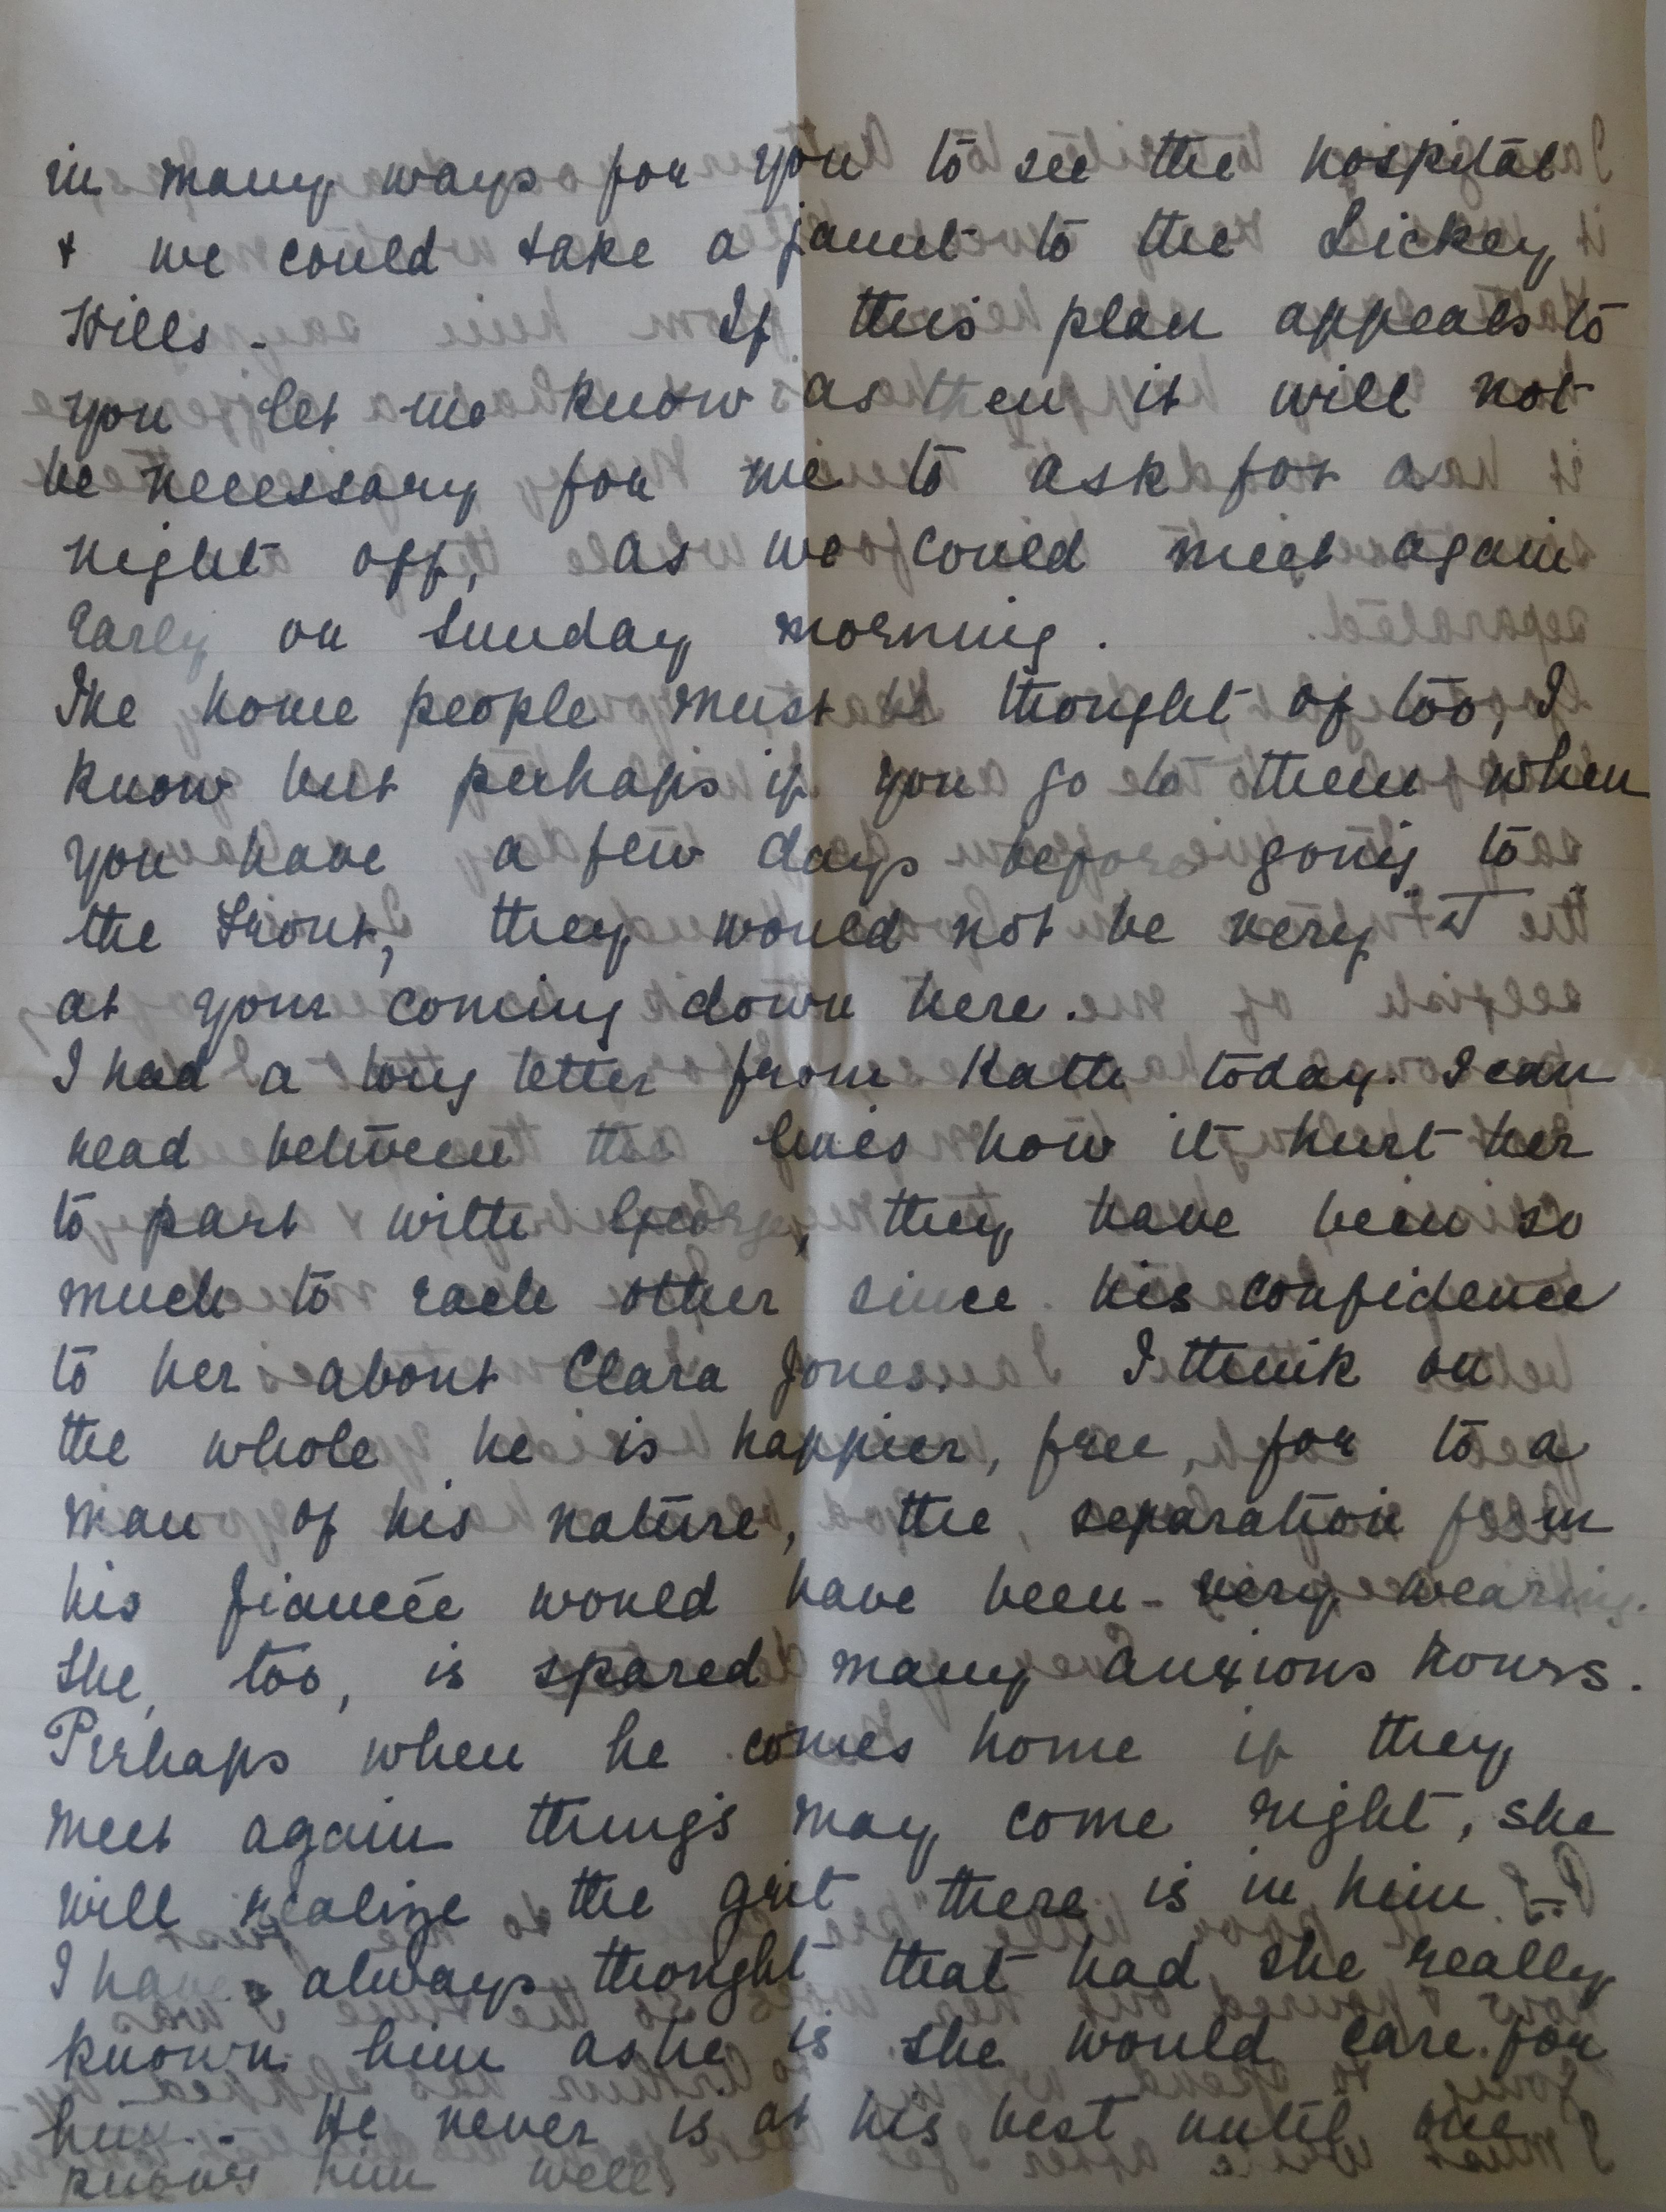 in many ways for you to see the hospital
& we could take a jaunt to the Lickey
Hills - If this plan appeals to
you let me know as then it will not
be necessary for me to ask for a
night off, as we could meet again
early on Sunday morning.
The home people must be thought of too, I
know but perhaps if you go to them when
you have a few days before going to
the Front, they would not be very
at your coming down here.
I had a long letter from Katti today. I can
read between the lines how it hurt her
to part with George, they have been so
much to each other since his confidence
to her about Clara Jones. I think on
the whole he is happier, free, for to a
man of his nature, the separation from
his fiancée would have been - very wearing.
She, too, is spared many anxious hours.
Perhaps when he comes home if they
meet again things may come right, she
will realize the grit there is in him -
I have always thought that had she really
known him as he is she would care for
him - He never is at his best until one
knows him well.